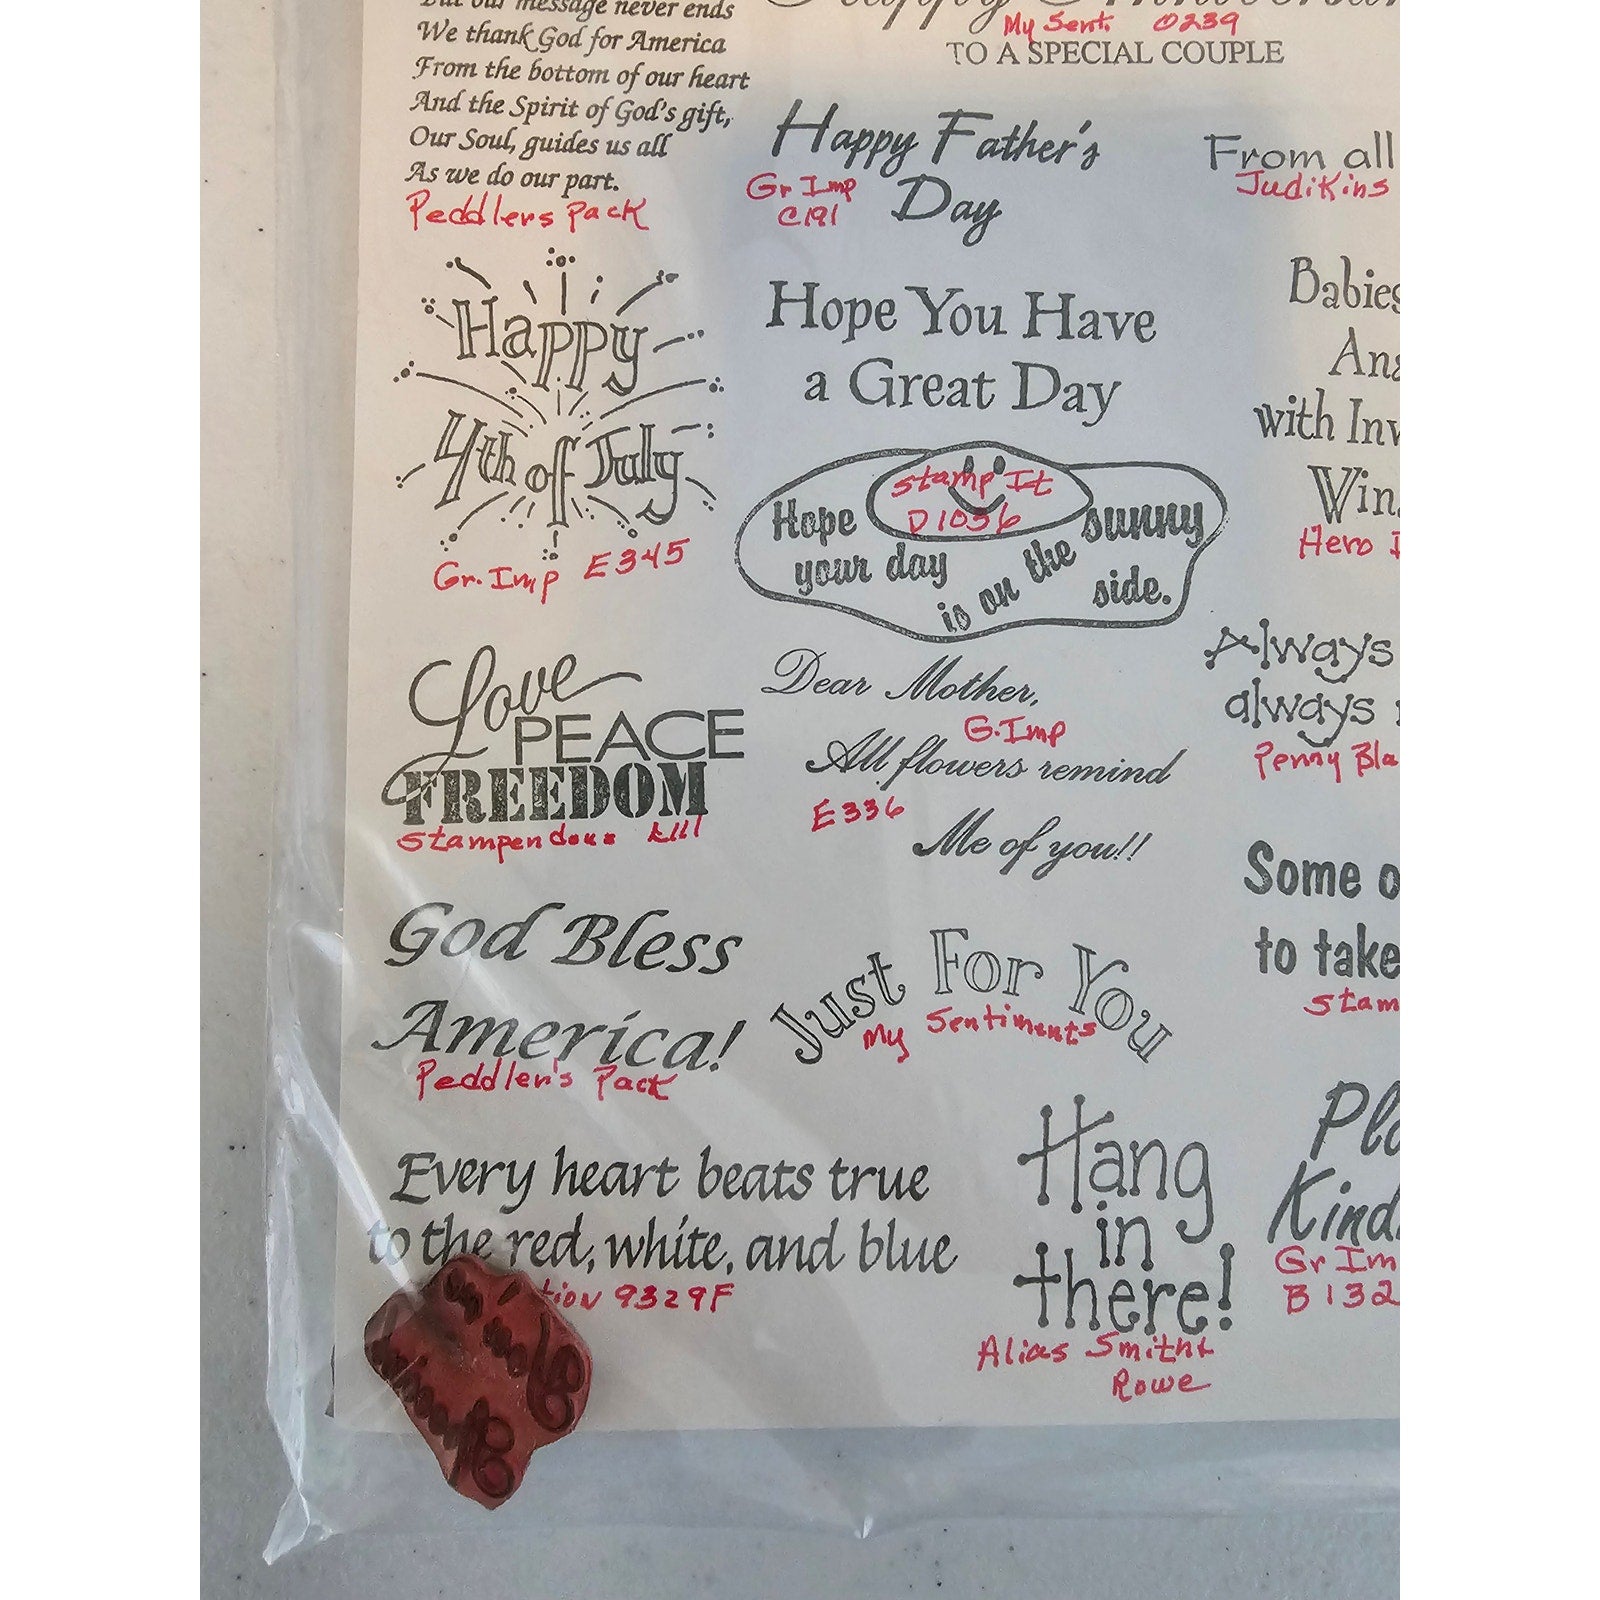 But our message never ends
We thank God for America
From the bottom of our heart
And the Spirit of God's gift,
Our Soul, guides us all
As we do our part.
Peddlers Pack
Happy
4th of July
Gr. Imp E345
Love
PEACE
FREEDOM
Stampendous
God Bless
America!
Peddler's Pack
Every heart beats true
to the red, white, and blue
tion 9329F
Happy
My Sent. 0239
TO A SPECIAL COUPLE
Happy Father's
Day
Gr Imp
C191
Hope You Have
a Great Day
Stamp It
D1056
Hope
your day
is on the
sunny
side.
Dear Mother,
G. Imp
All flowers remind
E336
Me of you!!
Just For You
My Sentiments
Hang
in
there!
Alias Smith &
Rowe
From all
JudiKins
Babies
with
Hero
Always
always
Penny Bla
Some o
to take
Stam
Kind
Gr Im
B132